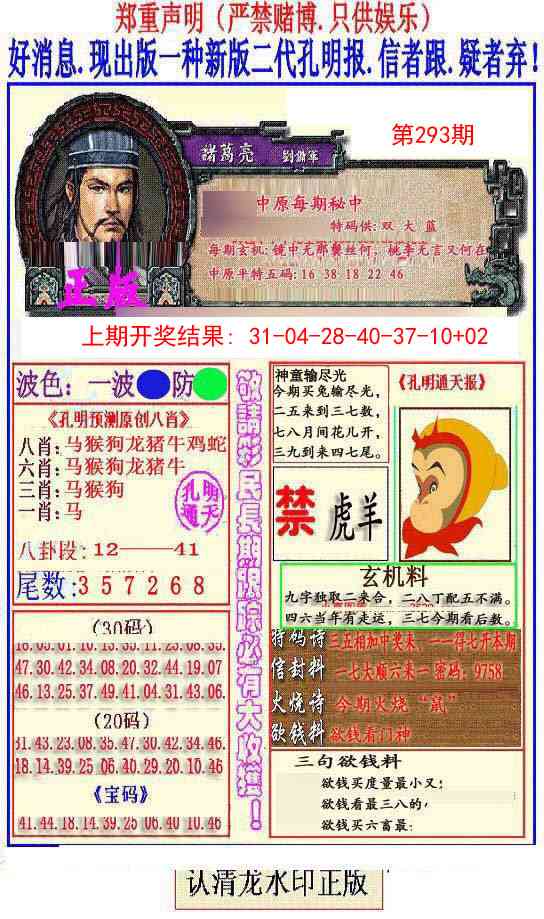 郑重声明（严禁赌博.只供娱乐）
好消息.现出版一种新版二代孔明报.信者跟.疑者弃！
諸葛亮
第293期
中原每期秘中
特码供:双 大 蓝
每期玄机:镜中无那鬓丝何，桃李无言又何在
中原平特五码:16 38 18 22 46
正版
上期开奖结果: 31-04-28-40-37-10+02
波色: 一波 防
《孔明预测原创八肖》
八肖:马猴狗龙猪牛鸡蛇
六肖:马猴狗龙猪牛
三肖:马猴狗
一肖:马
孔明
通天
八卦段:12——41
尾数:357268
(30码)
47.30.42.34.08.20.32.44.19.07
46.13.25.37.49.41.04.31.43.06
(20码)
31.43.23.08.35.47.30.42.34.46
18.14.39.25.06.40.29.20.10.46
《宝码》
41.44.18.14.39.25.06.40.10.46
敬請彩民長期跟踪必有大收獲！
神童输尽光
今期买兔输尽光，
二五来到三七数，
七八月间花儿开，
三九到来四七尾。
《孔明通天报》
禁 虎羊
玄机料
九字独取二来合，二八丁配五不满。
四六当年有走运，三七今期看后数。
特码诗 三五相加中奖来，一一得七开本期
信封料 一七大顺六来一 密码：9758
火烧诗 今期火烧“鼠”
欲钱料 欲钱看门神
三句欲钱料
欲钱买度量最小又:
欲钱看最三八的
欲钱买六畜最:
认清龙水印正版